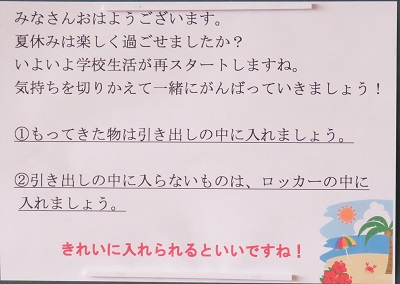 みなさんおはようございます。
夏休みは楽しく過ごせましたか？
いよいよ学校生活が再スタートしますね。
気持ちを切りかえて一緒にがんばっていきましょう！
①もってきた物は引き出しの中に入れましょう。
②引き出しの中に入らないものは、ロッカーの中に
入れましょう。
きれいに入れられるといいですね！